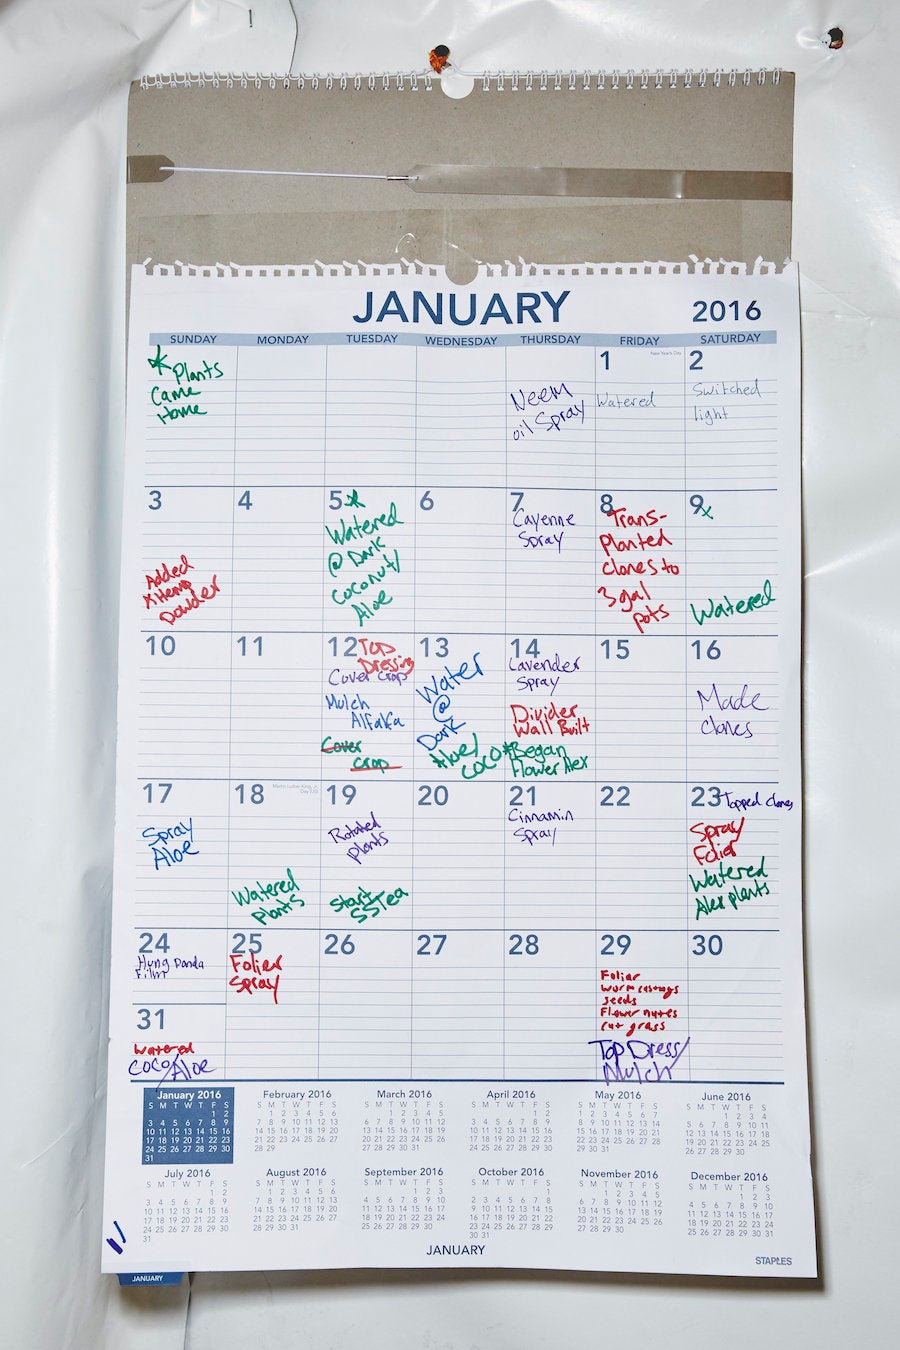 JANUARY
2016
SUNDAY MONDAY TUESDAY WEDNESDAY THURSDAY FRIDAY SATURDAY
* Plants
Came
Home
Neem
oil Spray
1 New Year's Day
Watered
2
Switched
light
3
Added
Powder
4
5*
Watered
@ Dark
Coconut/
Aloe
6
7
Cayenne
Spray
8
Trans-
planted
clones to
3 gal
pots
9x
Watered
10
11
12 Top
Dressing
Cover Crop
Mulch
Alfalfa
Cover
Crop
13
Water
@
Dark
Aloe/
Coco
14
Lavender
Spray
Divider
Wall Built
*Began
Flower Alex
15
16
Made
clones
17
Spray
Aloe
18 Martin Luther King, Jr.
Watered
Plants
19
Rotated
plants
Start
SSTea
20
21
Cinnamin
Spray
22
23 Topped clones
Spray
Folier
Watered
Alex plants
24
Hung Panda
Film
25
Folier
Spray
26
27
28
29
Foliar
worm castings
seeds
Flower nutes
cut grass
Top Dress/
Mulch
30
31
Watered
COCO/Aloe
January 2016
S M T W T F S
1 2
3 4 5 6 7 8 9
10 11 12 13 14 15 16
17 18 19 20 21 22 23
24 25 26 27 28 29 30
31
February 2016
S M T W T F S
1 2 3 4 5 6
7 8 9 10 11 12 13
14 15 16 17 18 19 20
21 22 23 24 25 26 27
28 29
March 2016
S M T W T F S
1 2 3 4 5
6 7 8 9 10 11 12
13 14 15 16 17 18 19
20 21 22 23 24 25 26
27 28 29 30 31
April 2016
S M T W T F S
1 2
3 4 5 6 7 8 9
10 11 12 13 14 15 16
17 18 19 20 21 22 23
24 25 26 27 28 29 30
May 2016
S M T W T F S
1 2 3 4 5 6 7
8 9 10 11 12 13 14
15 16 17 18 19 20 21
22 23 24 25 26 27 28
29 30 31
June 2016
S M T W T F S
1 2 3 4
5 6 7 8 9 10 11
12 13 14 15 16 17 18
19 20 21 22 23 24 25
26 27 28 29 30
July 2016
S M T W T F S
1 2
3 4 5 6 7 8 9
10 11 12 13 14 15 16
17 18 19 20 21 22 23
24 25 26 27 28 29 30
31
August 2016
S M T W T F S
1 2 3 4 5 6
7 8 9 10 11 12 13
14 15 16 17 18 19 20
21 22 23 24 25 26 27
28 29 30 31
September 2016
S M T W T F S
1 2 3
4 5 6 7 8 9 10
11 12 13 14 15 16 17
18 19 20 21 22 23 24
25 26 27 28 29 30
October 2016
S M T W T F S
1
2 3 4 5 6 7 8
9 10 11 12 13 14 15
16 17 18 19 20 21 22
23 24 25 26 27 28 29
30 31
November 2016
S M T W T F S
1 2 3 4 5
6 7 8 9 10 11 12
13 14 15 16 17 18 19
20 21 22 23 24 25 26
27 28 29 30
December 2016
S M T W T F S
1 2 3
4 5 6 7 8 9 10
11 12 13 14 15 16 17
18 19 20 21 22 23 24
25 26 27 28 29 30 31
JANUARY
STAPLES
JANUARY